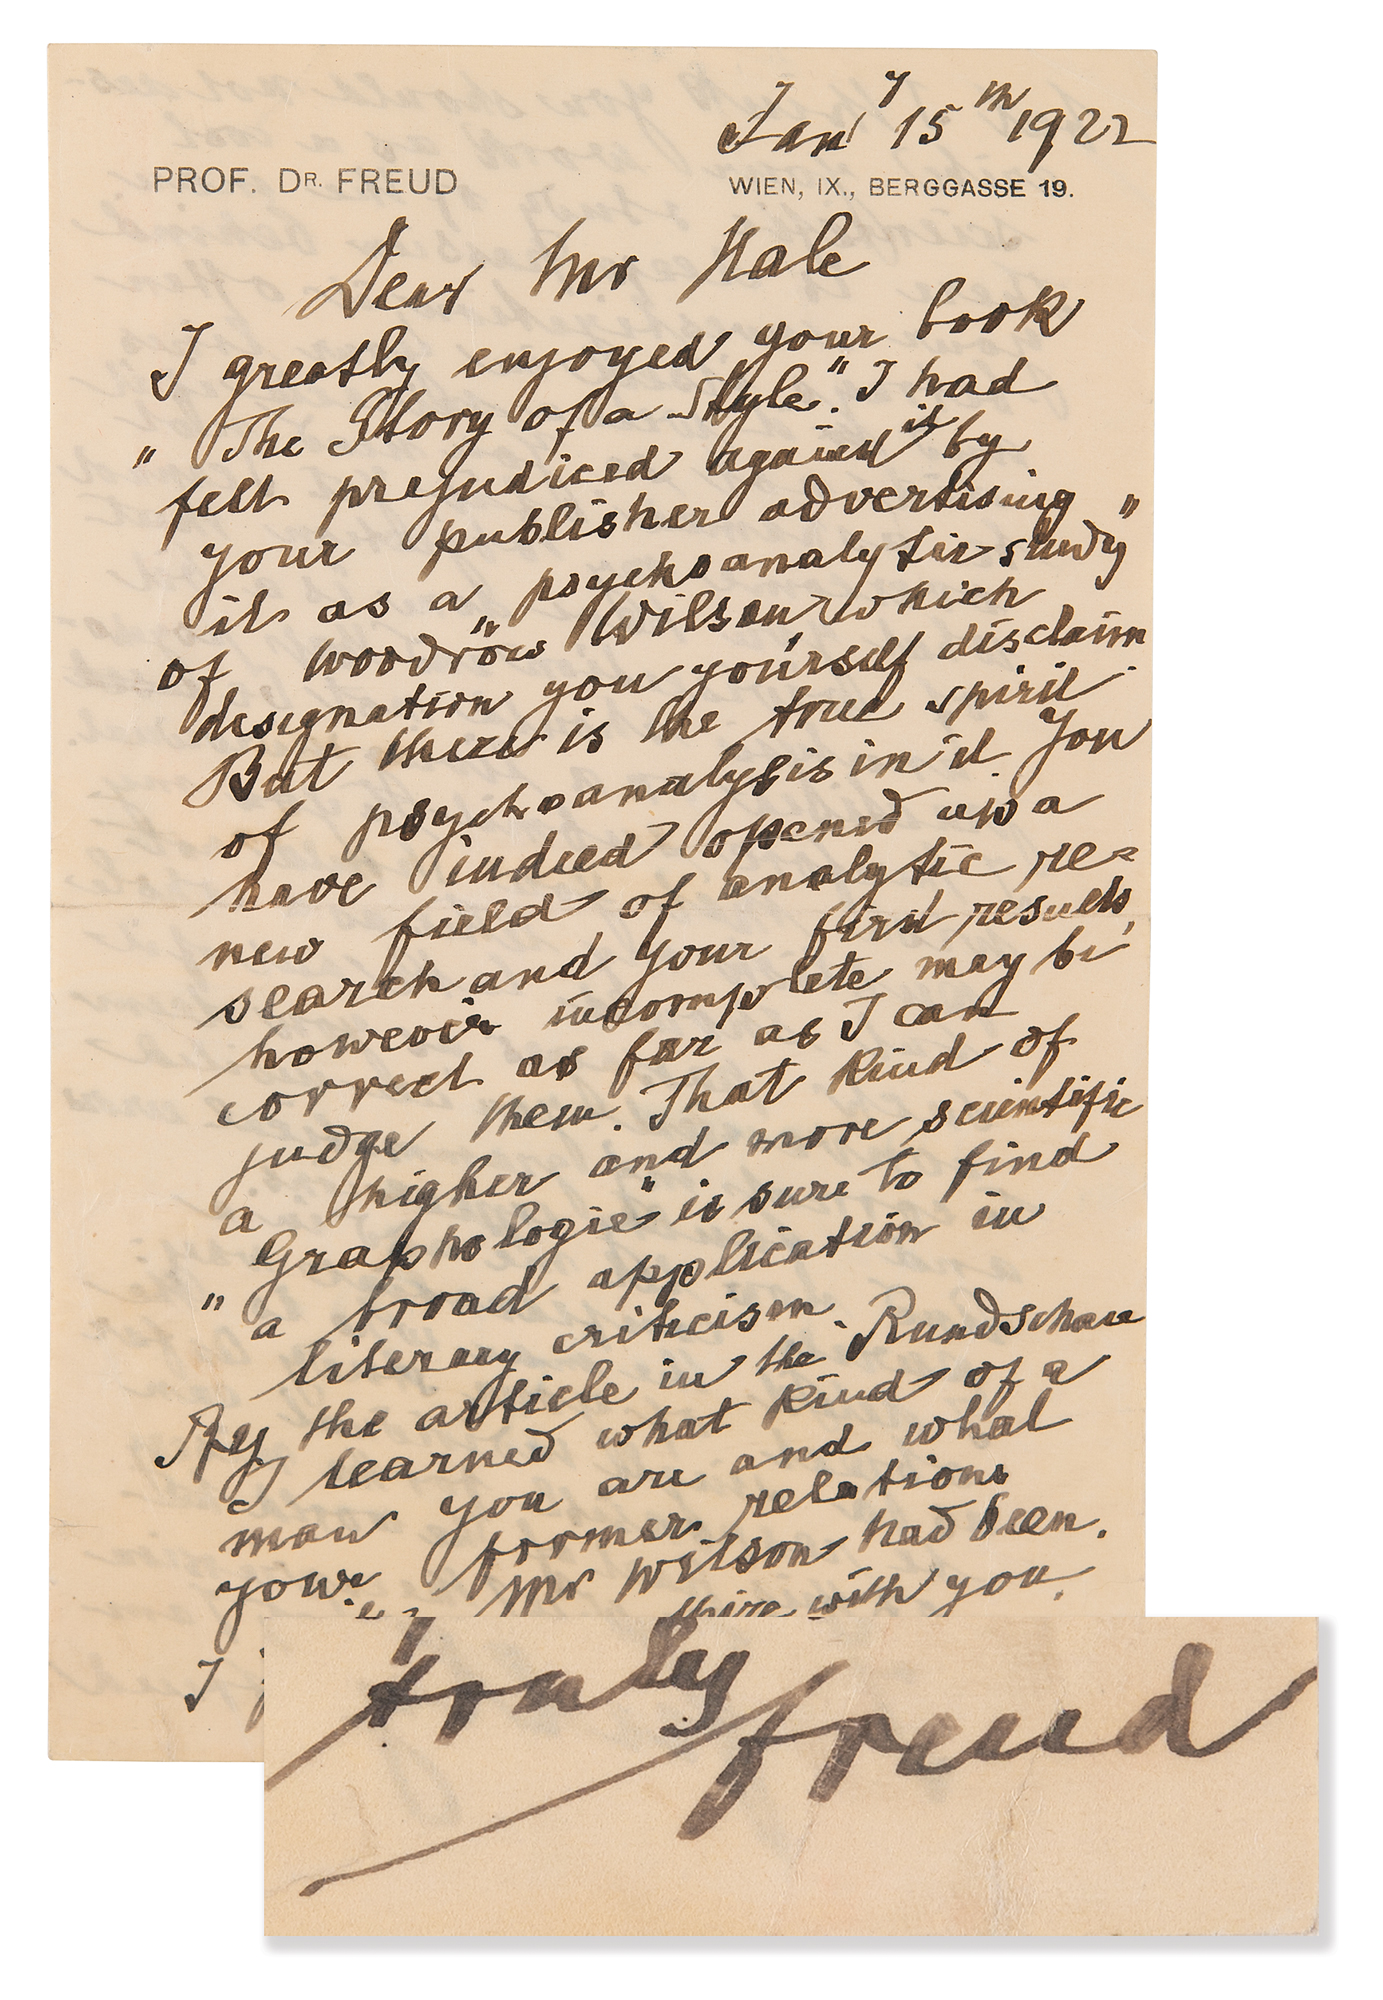 Jany 15th 1922
PROF. DR. FREUD WIEN, IX., BERGGASSE 19.
Dear Mr Hale
I greatly enjoyed your book
„The Story of a Style." I had
felt prejudiced against it by
your publisher advertising
it as a psychoanalytic study"
of „Woodrow Wilson, which
designation you yourself disclaim
But there is the true spirit
of psychoanalysis in it. You
have indeed opened up a
new field of analytic re=
search and your first results,
however incomplete may be
correct as far as I can
judge them. That kind of
a higher and more scientific
„Graphologie" is sure to find
a broad application in
literary criticism.
By the article in the Rundschau
I learned what kind of a
man you are and what
your former relations
Mr Wilson had been.
with you.
I
truly
Freud